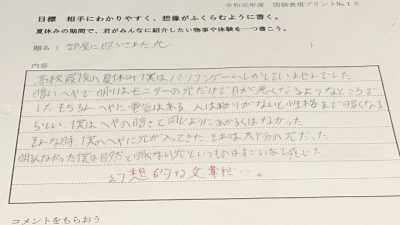 令和元年度 国語表現プリントNo.15
目標 相手にわかりやすく、想像がふくらむように書く。
夏休みの期間で、君がみんなに紹介したい物事や体験を一つ書こう。
題名（部屋に照らされた光
内容
高校最後の夏休み僕はパソコンゲームしかしていませんでした
暗いへやで明りはモニターの光だけで目が悪くなるようなところで
した もちろんへやに電気はある、人は明りがないと性格まで暗くなる
らしい、僕はへやの暗さと同じようにあかるくはなかった
そんな時、僕のへやに光が入ってきた それは太陽の光だった
明るくなかった僕は自然と 光というものはすごいなと感じた
幻想的な文章だ…。
コメントをもらおう